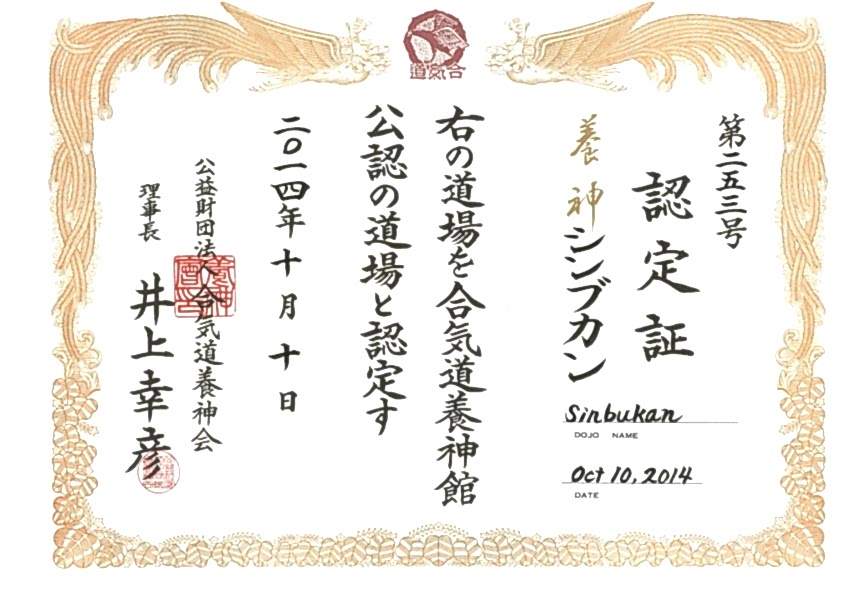 合気道
第二五三号
認定証
養神シンブカン
Sinbukan
DOJO NAME
Oct 10, 2014
DATE
右の道場を合気道養神館
公認の道場と認定す
二〇一四年十月十日
公益財団法人合気道養神会
理事長 井上幸彦